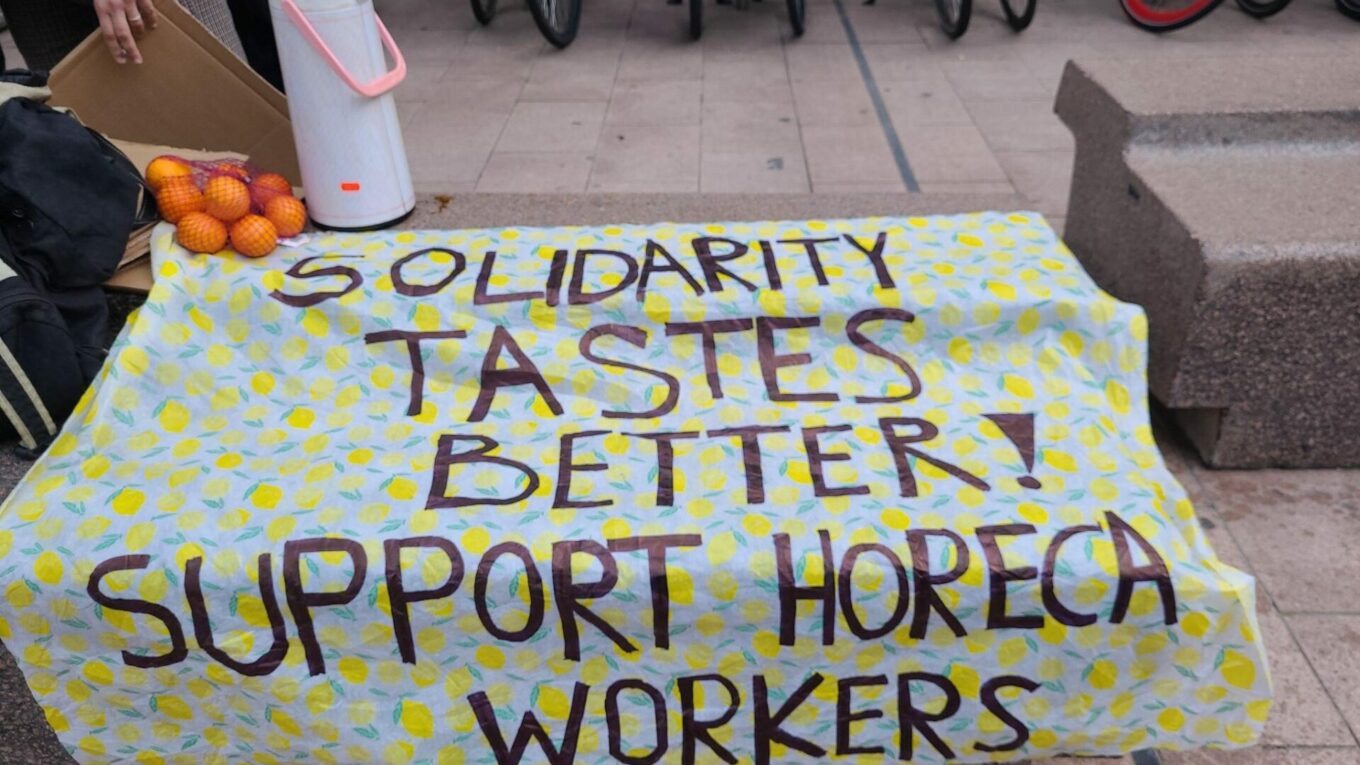 SOLIDARITY
TASTES
BETTER!
SUPPORT HORECA
WORKERS